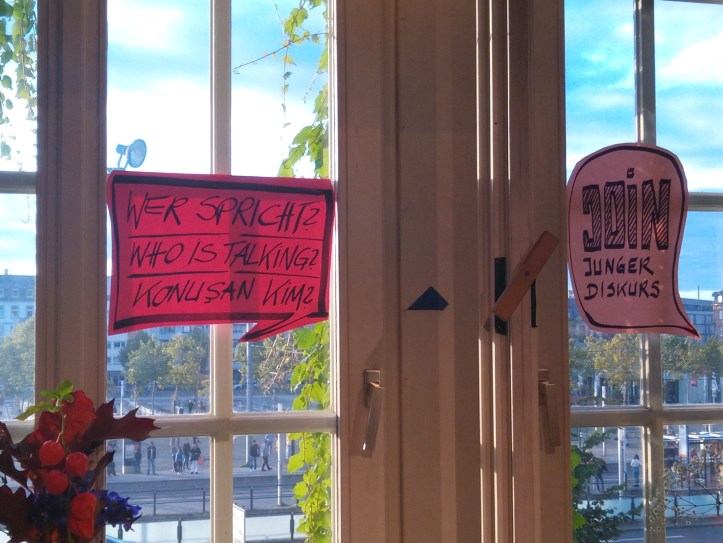 WER SPRICHT?
WHO IS TALKING?
KONUŞAN KİM?
JOIN
JUNGER
DISKURS